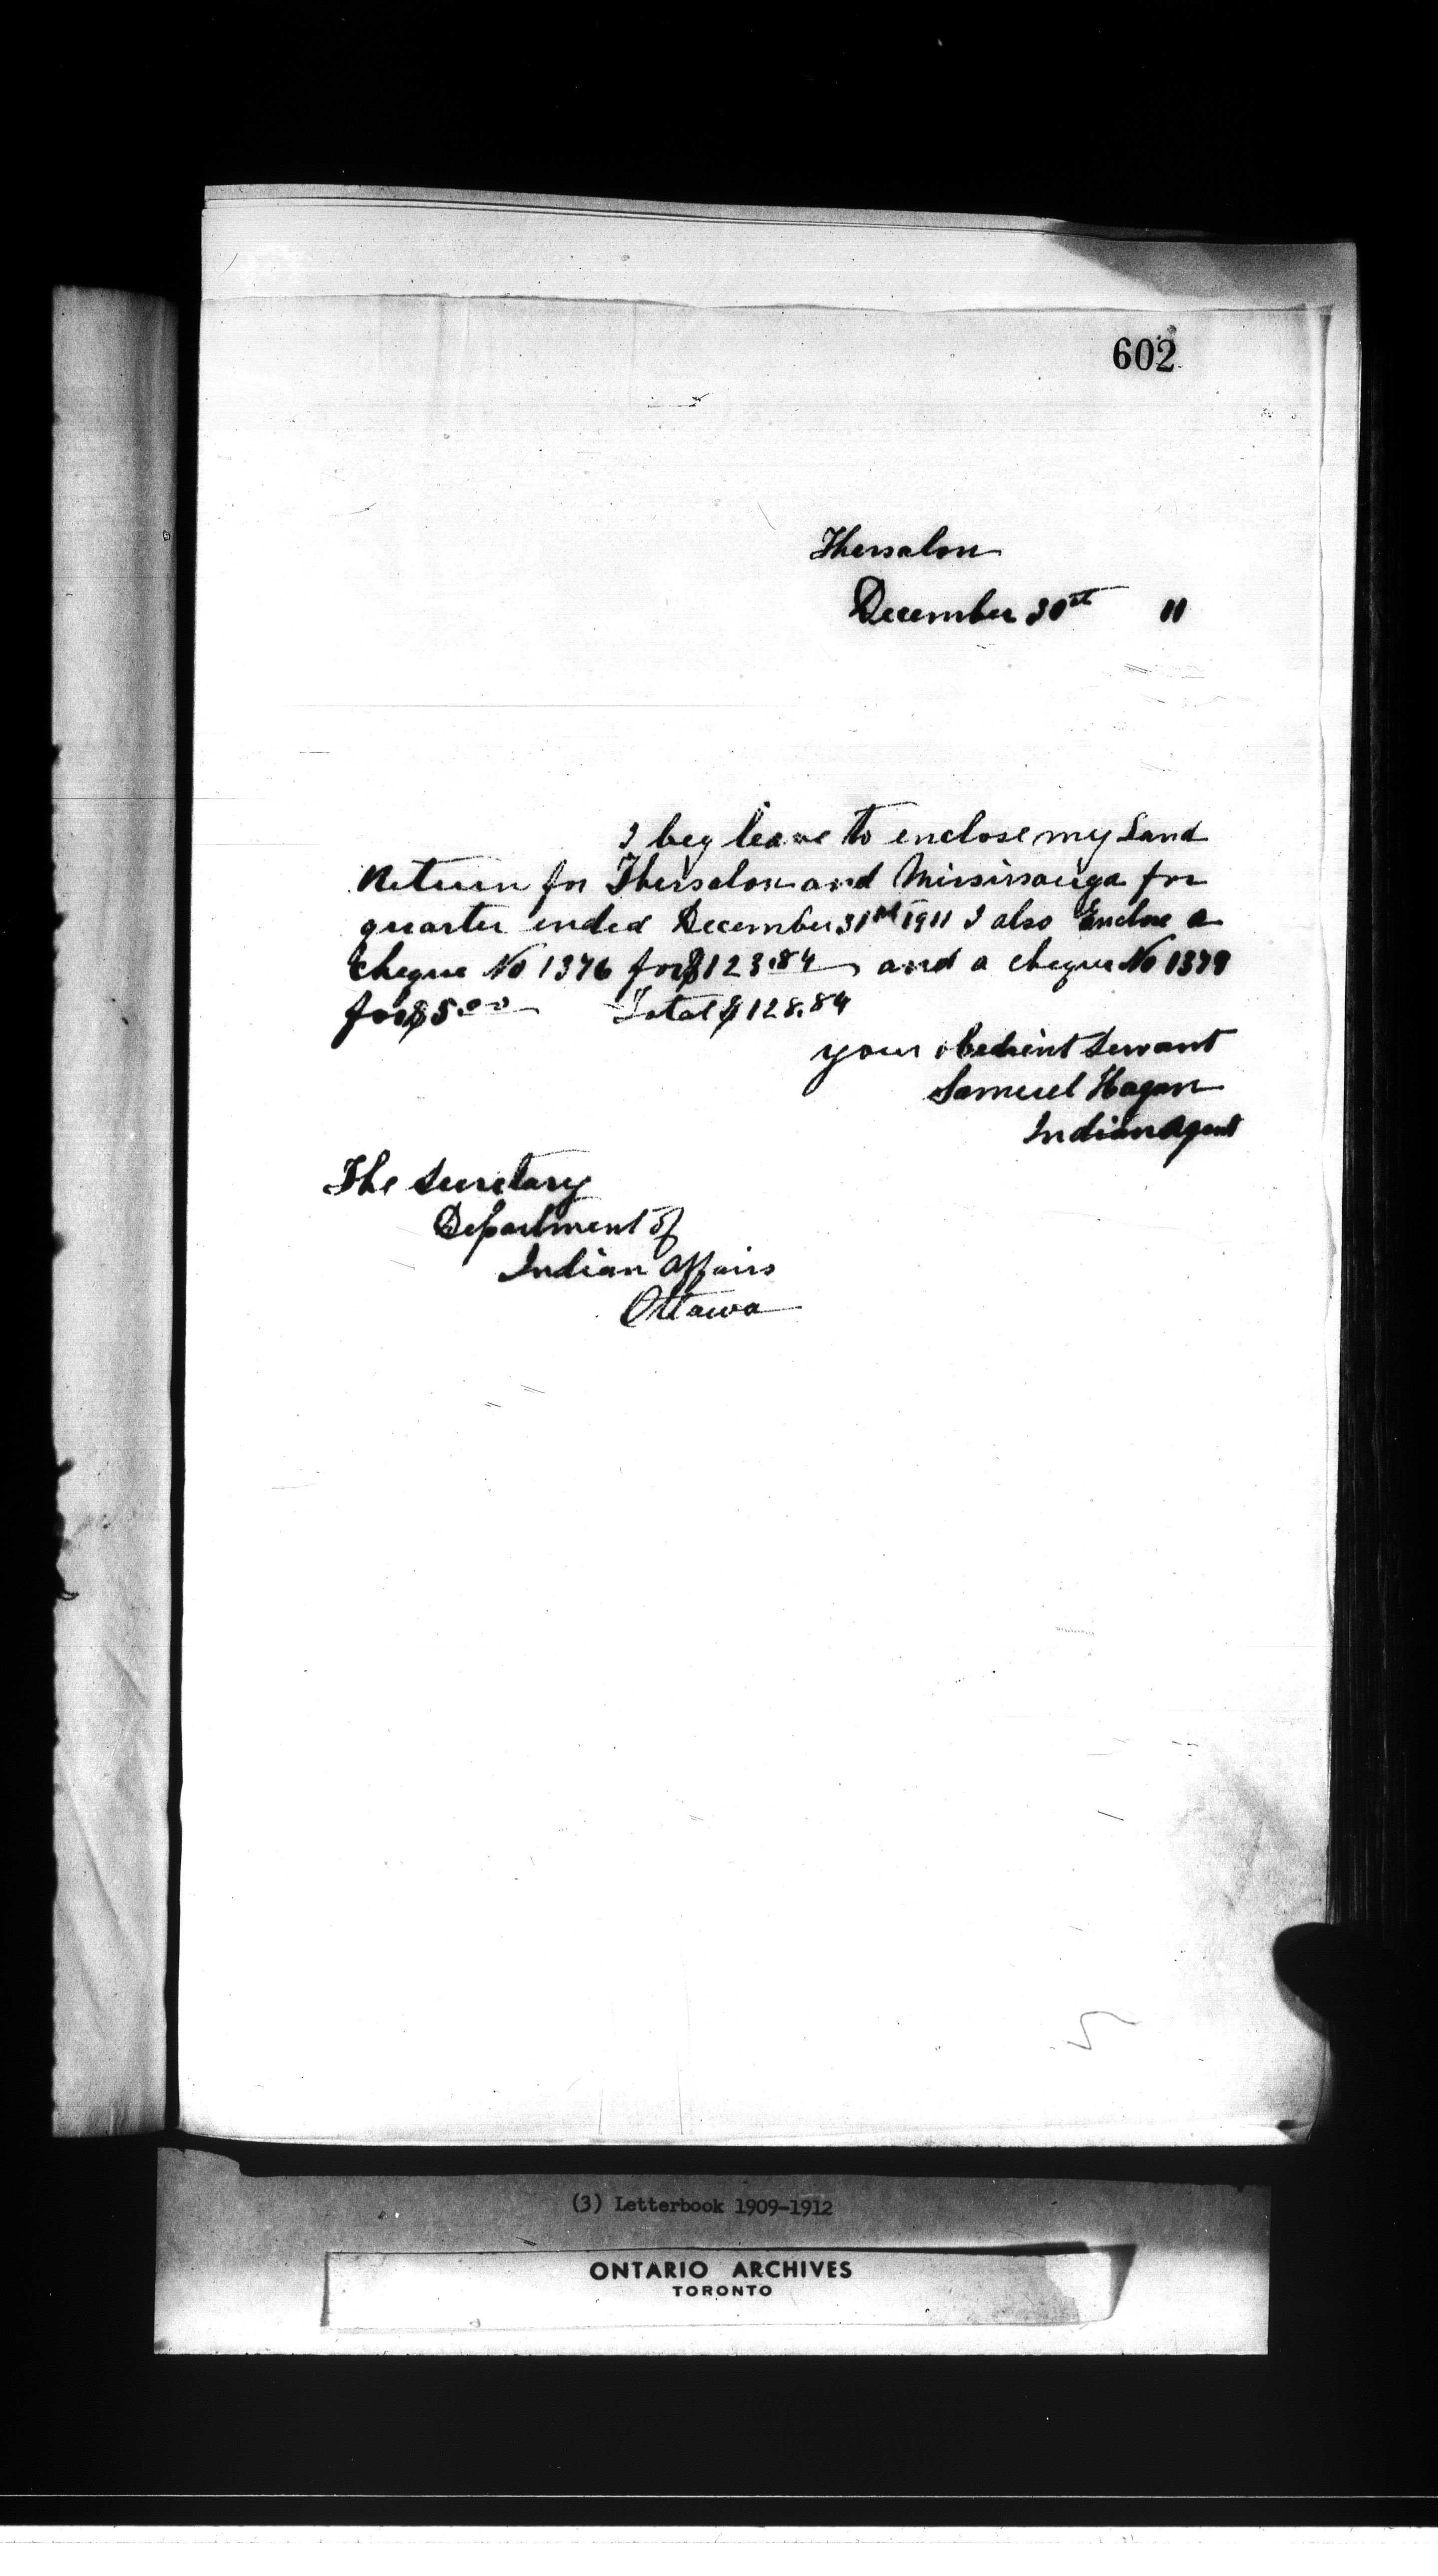 602
Thessalon
December 30th 11
I beg leave to enclose my Land
Return for Thessalon and Mississauga for
quarter ended December 31st 1911 I also Enclose a
Cheque No 1376 for $123.84 and a cheque No 1379
for $5.00 Total $128.84
your obedient servant
Samuel Hagan
Indian Agent
The Secretary
Department of
Indian Affairs
Ottawa
(3) Letterbook 1909-1912
ONTARIO ARCHIVES
TORONTO